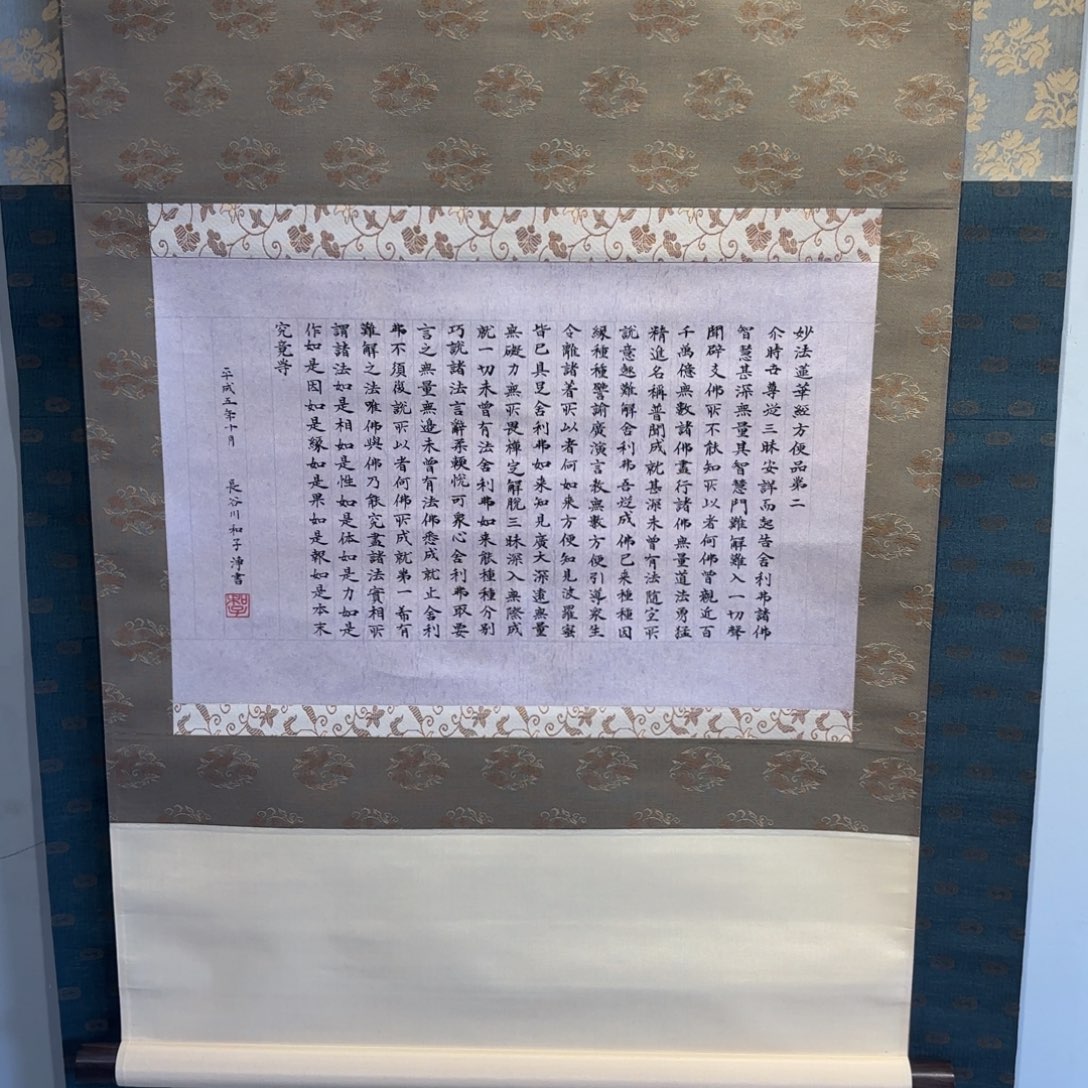 妙法蓮華経方便品第二
尒時世尊従三昧安詳而起告舎利弗諸佛
智慧甚深無量其智慧門難解難入一切聲
聞辟支佛所不能知所以者何佛曽親近百
千萬億無數諸佛盡行諸佛無量道法勇猛
精進名稱普聞成就甚深未曽有法随宜所
説意趣難解舎利弗吾従成佛已来種種因
縁種種譬諭廣演言教無數方便引導衆生
令離諸著所以者何如来方便知見波羅蜜
皆已具足舎利弗如来知見廣大深遠無量
無礙力無所畏禅定解脱三昧深入無際成
就一切未曽有法舎利弗如来能種種分別
巧説諸法言辭柔軟悦可衆心舎利弗取要
言之無量無邊未曽有法佛悉成就止舎利
弗不須復説所以者何佛所成就第一希有
難解之法唯佛與佛乃能究盡諸法實相所
謂諸法如是相如是性如是体如是力如是
作如是因如是縁如是果如是報如是本末
究竟等
平成五年十月 長谷川和子 浄書
和子